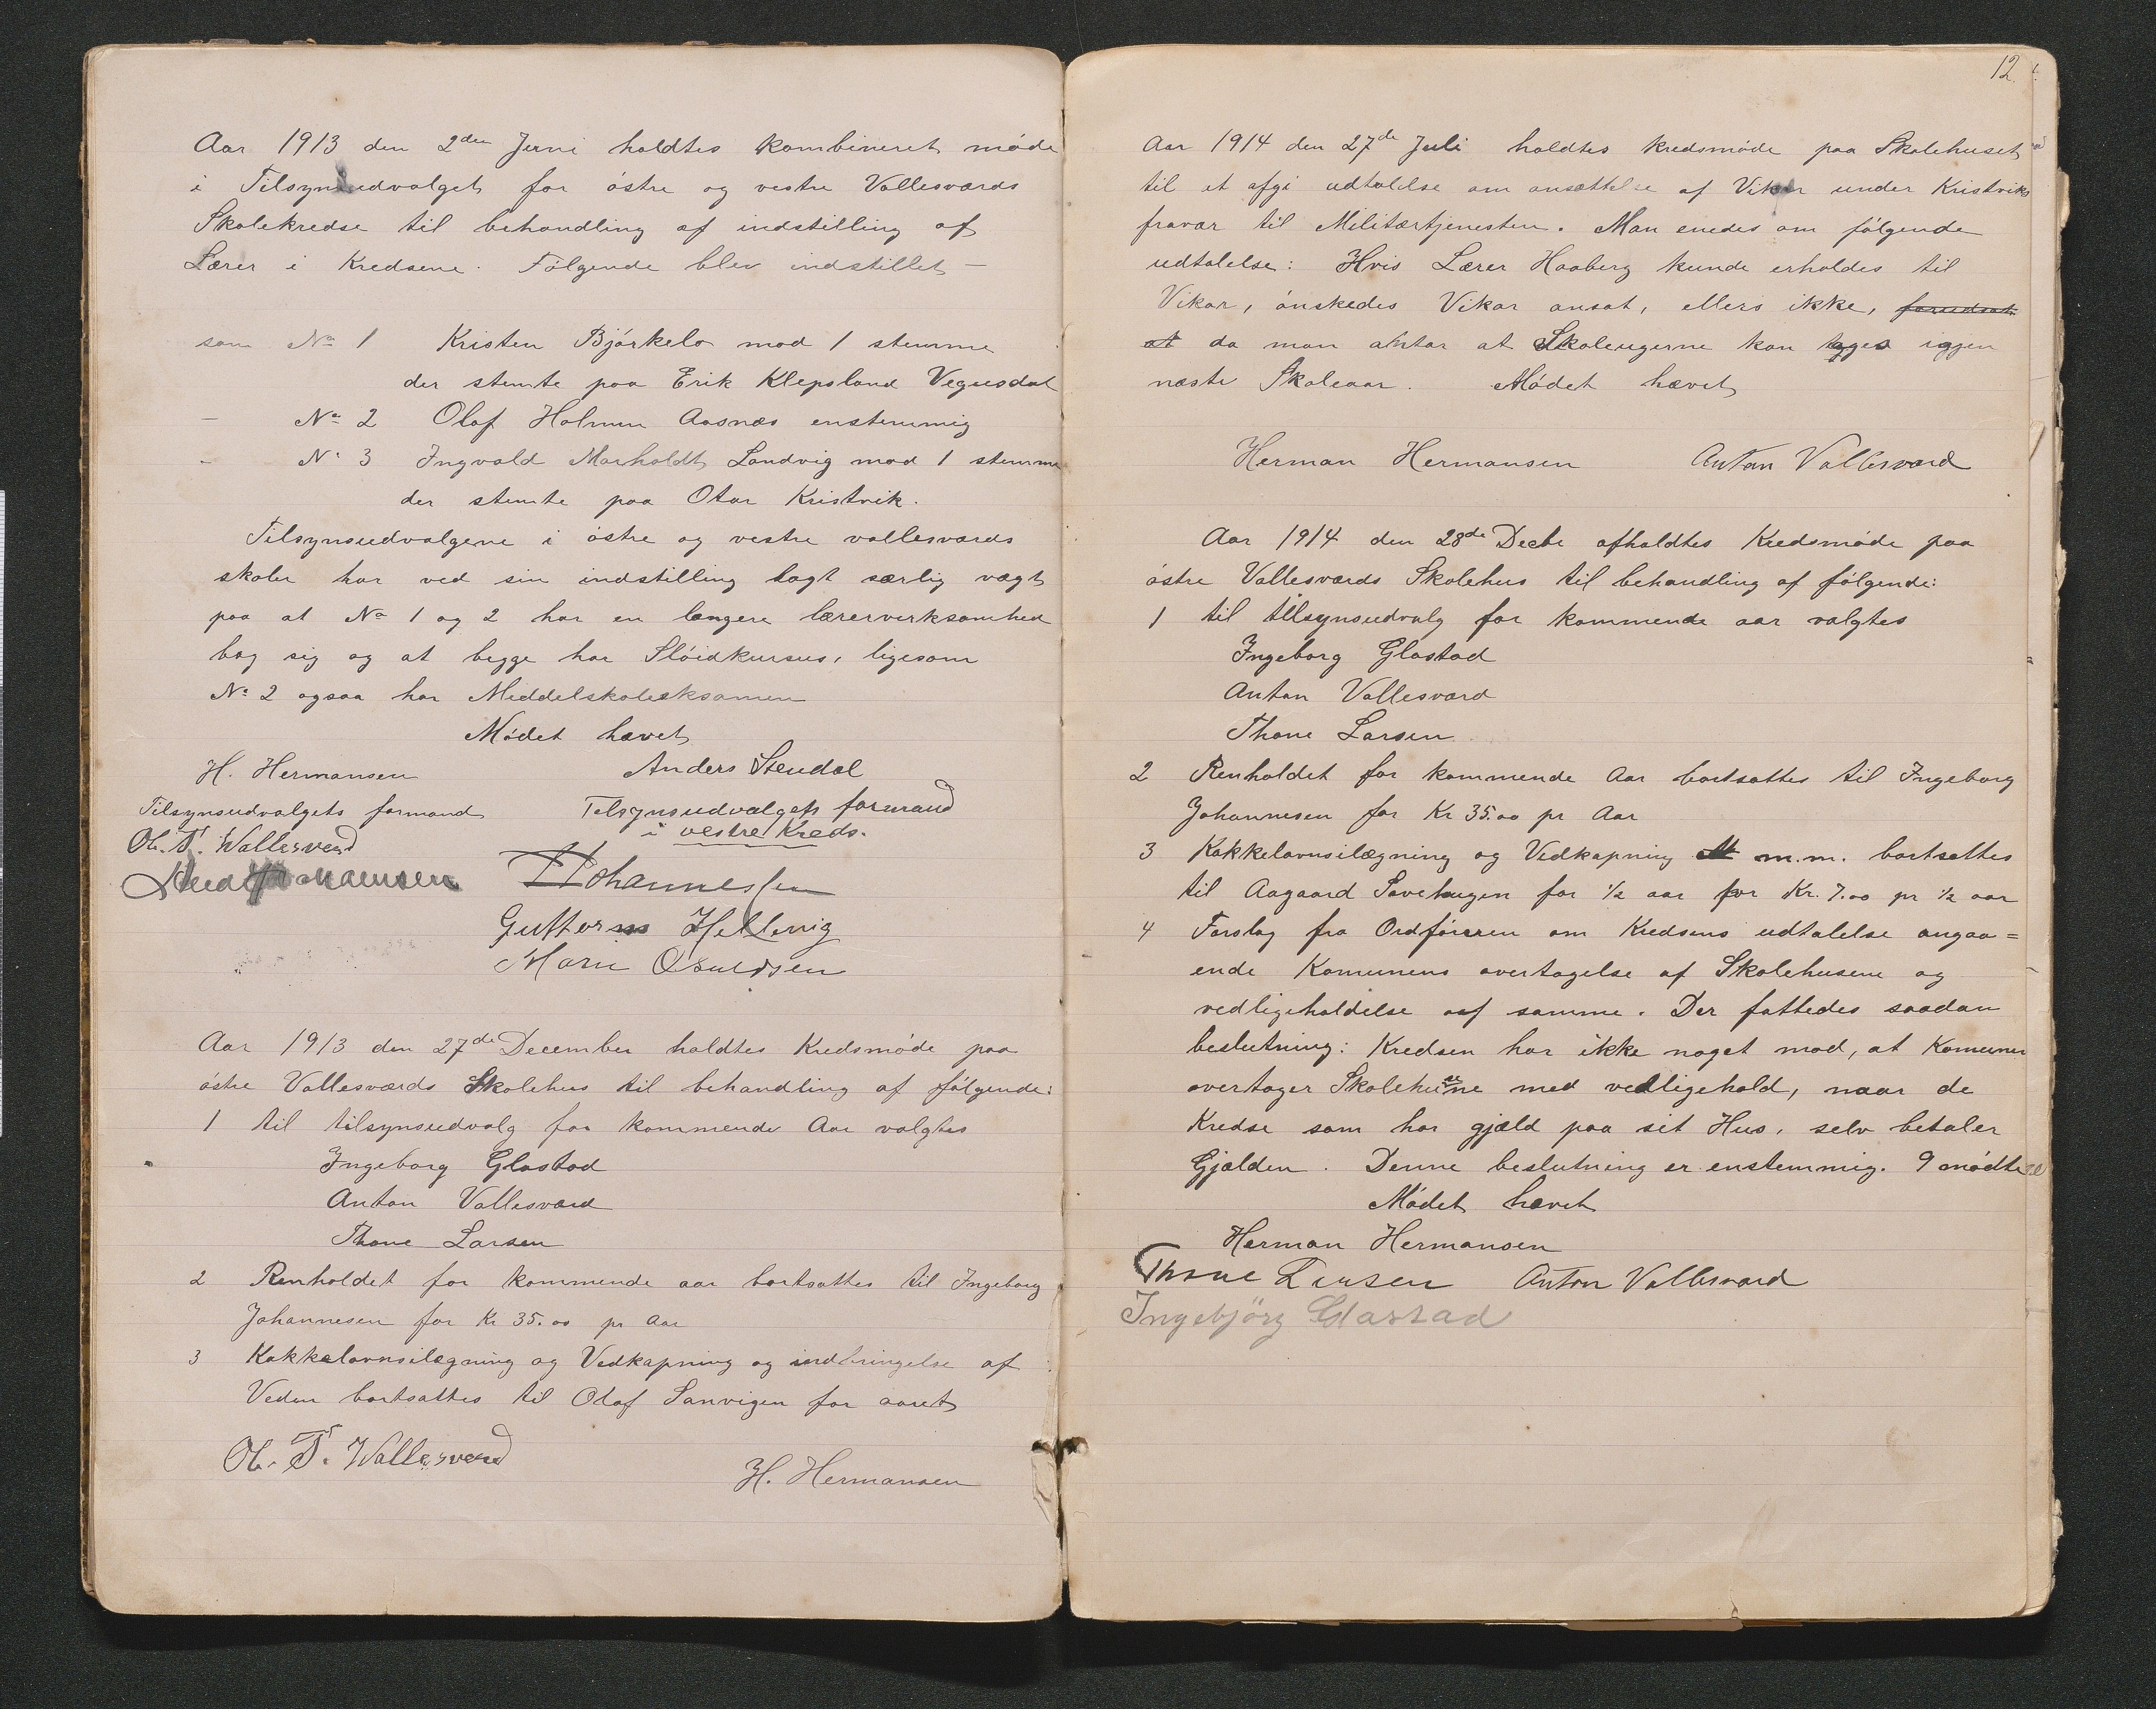 Aar 1913 den 2den Juni holdtes kombineret møde
i Tilsynsudvalget for østre og vestre Vallesværds
Skolekredse til behandling af indstilling af
Lærer i Kredsene. Følgende blev indstillet –
som No 1 Kristen Bjørkelo mod 1 stemme
der stemte paa Erik Klepsland Vegusdal
– No 2 Olaf Holmen Aasnæs enstemmig
– No 3 Ingvald Marholdt Landvig mod 1 stemme
der stemte paa Otar Kristvik.
Tilsynsudvalgene i østre og vestre vallesværds
skoler har ved sin indstilling lagt særlig vægt
paa at No 1 og 2 har en længere lærerverksomhed
bag sig og at begge har Sløidkursus, ligesom
No 2 ogsaa har Meddelskoleeksamen
Mødet hævet
H. Hermansen Anders Stendal
Tilsynsudvalgets formand Telsynsudvalgets formand
i vestre Kreds.
Ol. T. Wallesverd
Johannessen
Hellevig
Marn Osuldsen
Aar 1913 den 27de December holdtes Kredsmøde paa
østre Vallesværds Skolehus til behandling af følgende:
1 til tilsynsudvalg for kommende Aar valgtes
Ingeborg Glastad
Anton Vallesværd
Thone Larsen
2 Renholdet for kommende aar bortsattes til Ingeborg
Johannesen for Kr 35.00 pr Aar
3 Kakkelovnsilægning og Vedkapning og indbringelse af
Veden bortsattes til Olaf Sanvigen for aaret
Ol. T. Wallesverd
H. Hermansen
12.
Aar 1914 den 27de Juli holdtes kredsmøde paa Skolehuset
til at afgi udtalelse om ansættelse af Vikar under Kristviks
fravær til Militærtjenesten. Man enedes om følgende
udtalelse: Hvis Lærer Haaberg kunde erholdes til
Vikar, ønskedes Vikar ansat, ellers ikke, forudsat
at da man antar at Skoleugerne kan tages igjen
næste Skoleaar. Mødet hævet
Herman Hermansen Anton Vallesværd
Aar 1914 den 28de Decbr afholdtes Kredsmøde paa
østre Vallesværds Skolehus til behandling af følgende:
1 til tilsynsudvalg for kommende aar valgtes
Ingeborg Glastad
Anton Vallesværd
Thone Larsen
2 Renholdet for kommende Aar bortsattes til Ingeborg
Johannesen for Kr 35.00 pr Aar
3 Kakkelovnsilægning og Vedkapning m.m. bortsattes
til Aagaard Savehagen for 1/2 aar for Kr. 7.00 pr 1/2 aar
4 Forslag fra Ordføreren om Kredsens udtalelse angaa=
ende Komunens overtagelse af Skolehusene og
vedligeholdelse af samme. Der fattedes saadan
beslutning: Kredsen har ikke noget mod, at Komunen
overtager Skolehusene med vedligehold, naar de
Kredse som har gjæld paa sit Hus, selv betaler
Gjælden. Denne beslutning er enstemmig. 9 mødte
Mødet hævet
Herman Hermansen
Thone Larsen Anton Vallesværd
Ingebjörg Glastad